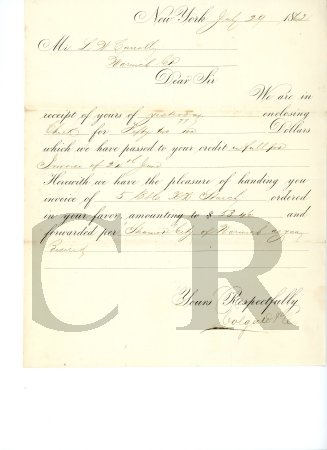 New York July 29 1862
Mr. L W
Norwich
Dear Sir
We are in
receipt of yours of yesterday enclosing
for Fifty two Dollars
which we have passed to your credit in full for
Invoice of
Herewith we have the pleasure of handing you
invoice of 5 Starch ordered
in your favor amounting to $ and
forwarded per Steamer City of Norwich as you
Yours Respectfully,
Colgate & Co
C R